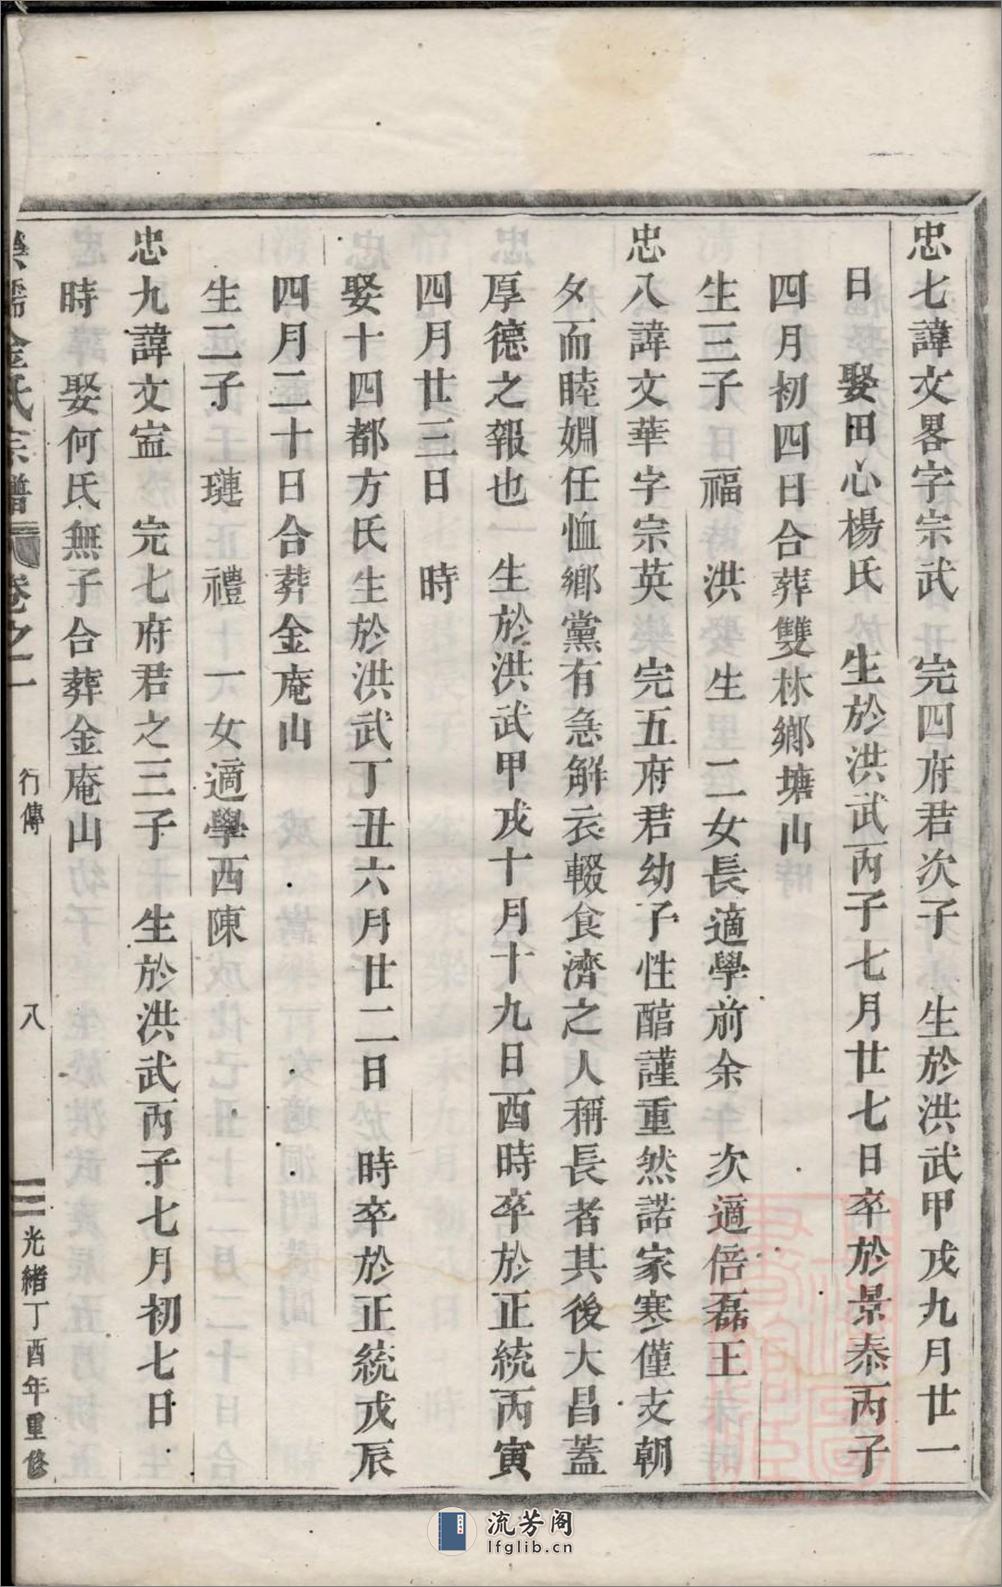 忠七諱文畧字宗武 完四府君次子 生於洪武甲戌九月廿一
日 娶田心楊氏 生於洪武丙子七月廿七日卒於景泰丙子
四月初四日合葬雙林鄉塘山
生三子 福 洪 生 二女長適學前余 次適倍磊王
忠八諱文華字宗英 完五府君幼子性醕謹重然諾家寒僅支朝
夕而睦婣任恤鄉黨有急解衣輟食濟之人稱長者其後大昌蓋
厚德之報也 生於洪武甲戌十月十九日酉時卒於正統丙寅
四月廿三日 時
娶十四都方氏生於洪武丁丑六月廿二日 時卒於正統戊辰
四月二十日合葬金庵山
生二子 璉 禮 一女適學西陳
忠九諱文寍 完七府君之三子 生於洪武丙子七月初七日
時 娶何氏無子合葬金庵山
金氏宗譜 卷之一 行傳 八 光緒丁酉年重修
流芳阁
lfglib.cn